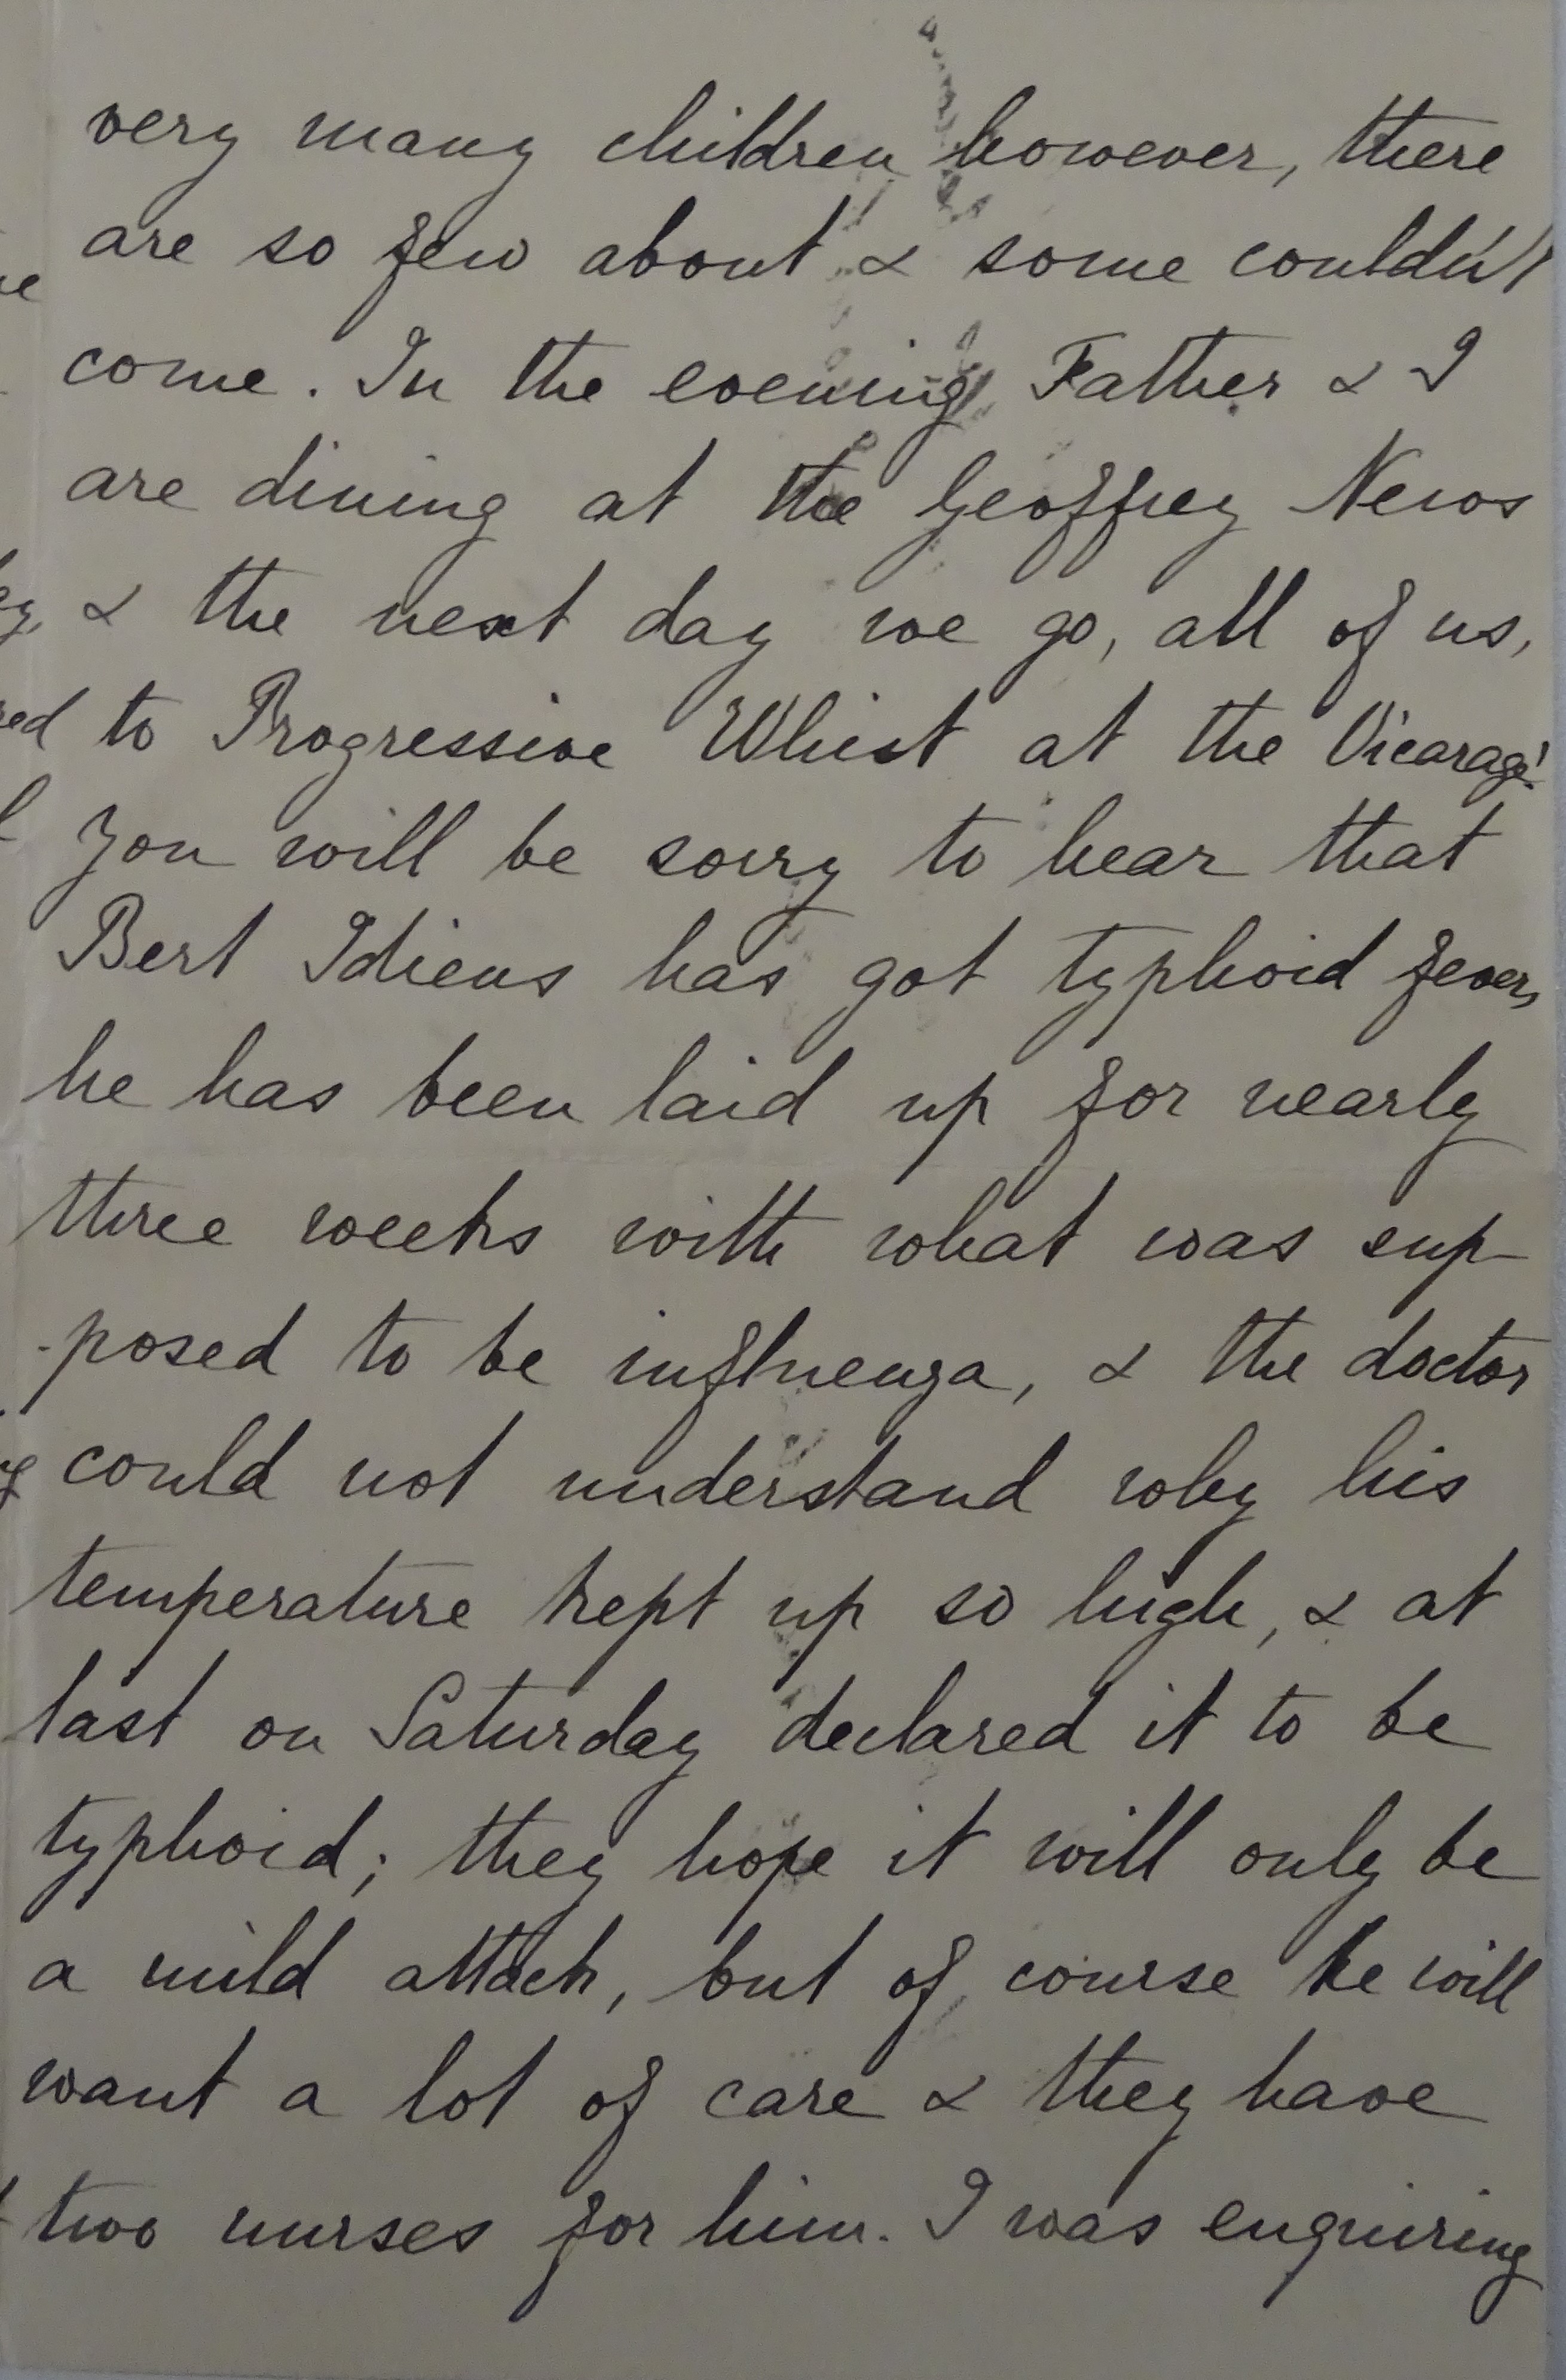 very many children however, there
are so few about & some couldn't
come. In the evening Father & I
are dining at the Geoffrey News
& the next day we go, all of us,
to Progressive Whist at the Vicarage!
You will be sorry to hear that
Bert Idiens has got typhoid fever,
he has been laid up for nearly
three weeks with what was sup-
-posed to be influenza, & the doctor
could not understand why his
temperature kept up so high, & at
last on Saturday declared it to be
typhoid; they hope it will only be
a mild attack, but of course he will
want a lot of care & they have
two nurses for him. I was enquiring